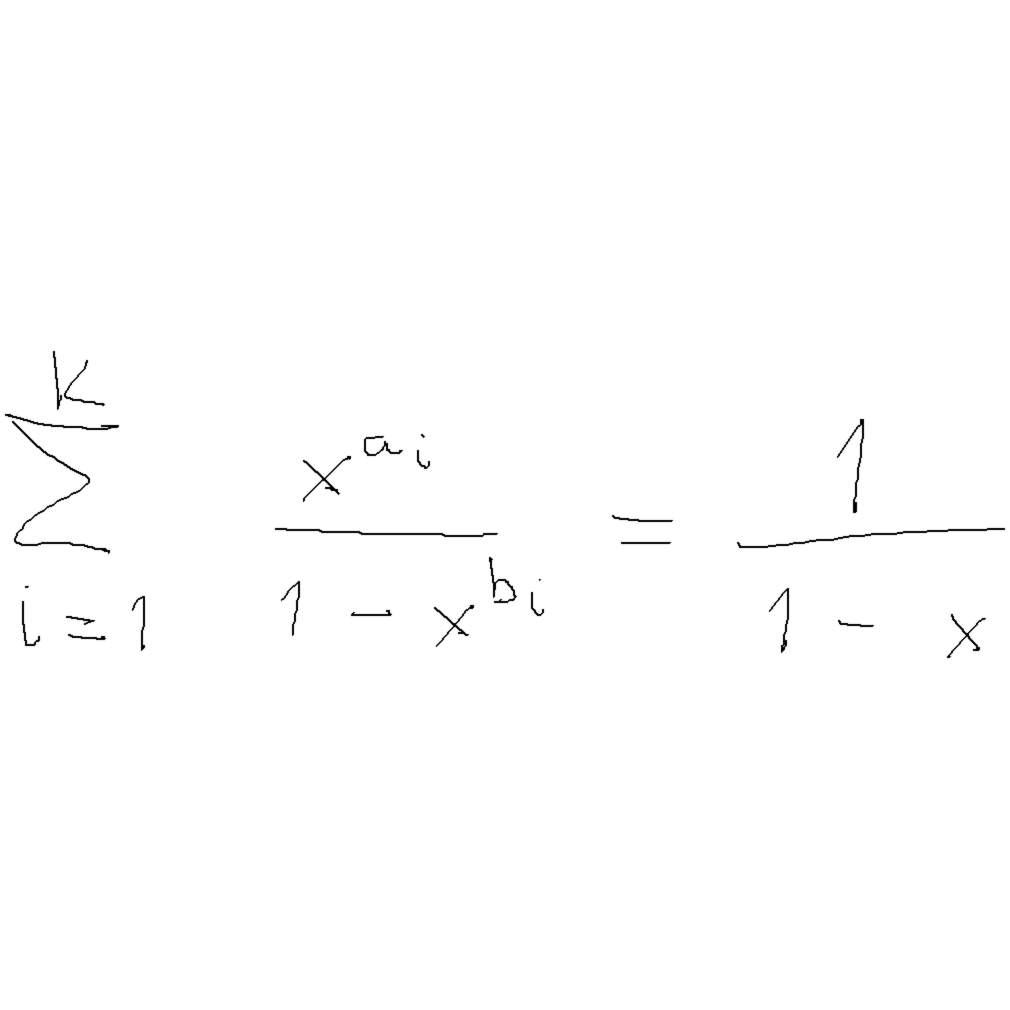 \sum_{i=1}^{K} \frac{x^{a_i}}{1-x^{b_i}} = \frac{1}{1-x}